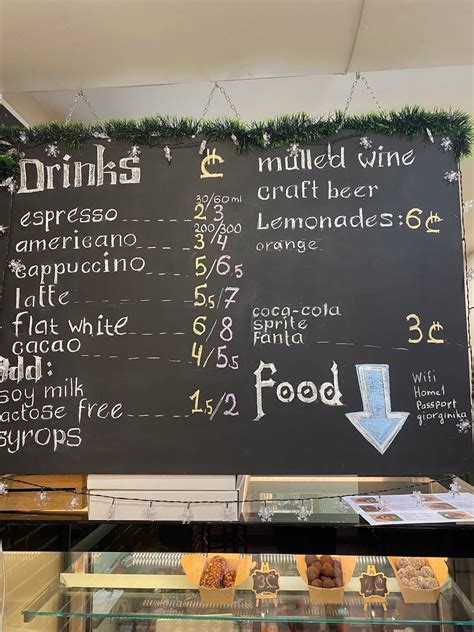 Drinks ₾
30/60 ml
espresso 2/3
200/300
americano 3/4
cappuccino 5/6,5
latte 5,5/7
flat white 6/8
cacao 4/5,5
Add:
soy milk
lactose free 1,5/2
syrops
mulled wine
craft beer
Lemonades: 6₾
orange
coca-cola
sprite 3₾
Fanta
Food
Wifi
Home1
Passport
giorginika
3₾